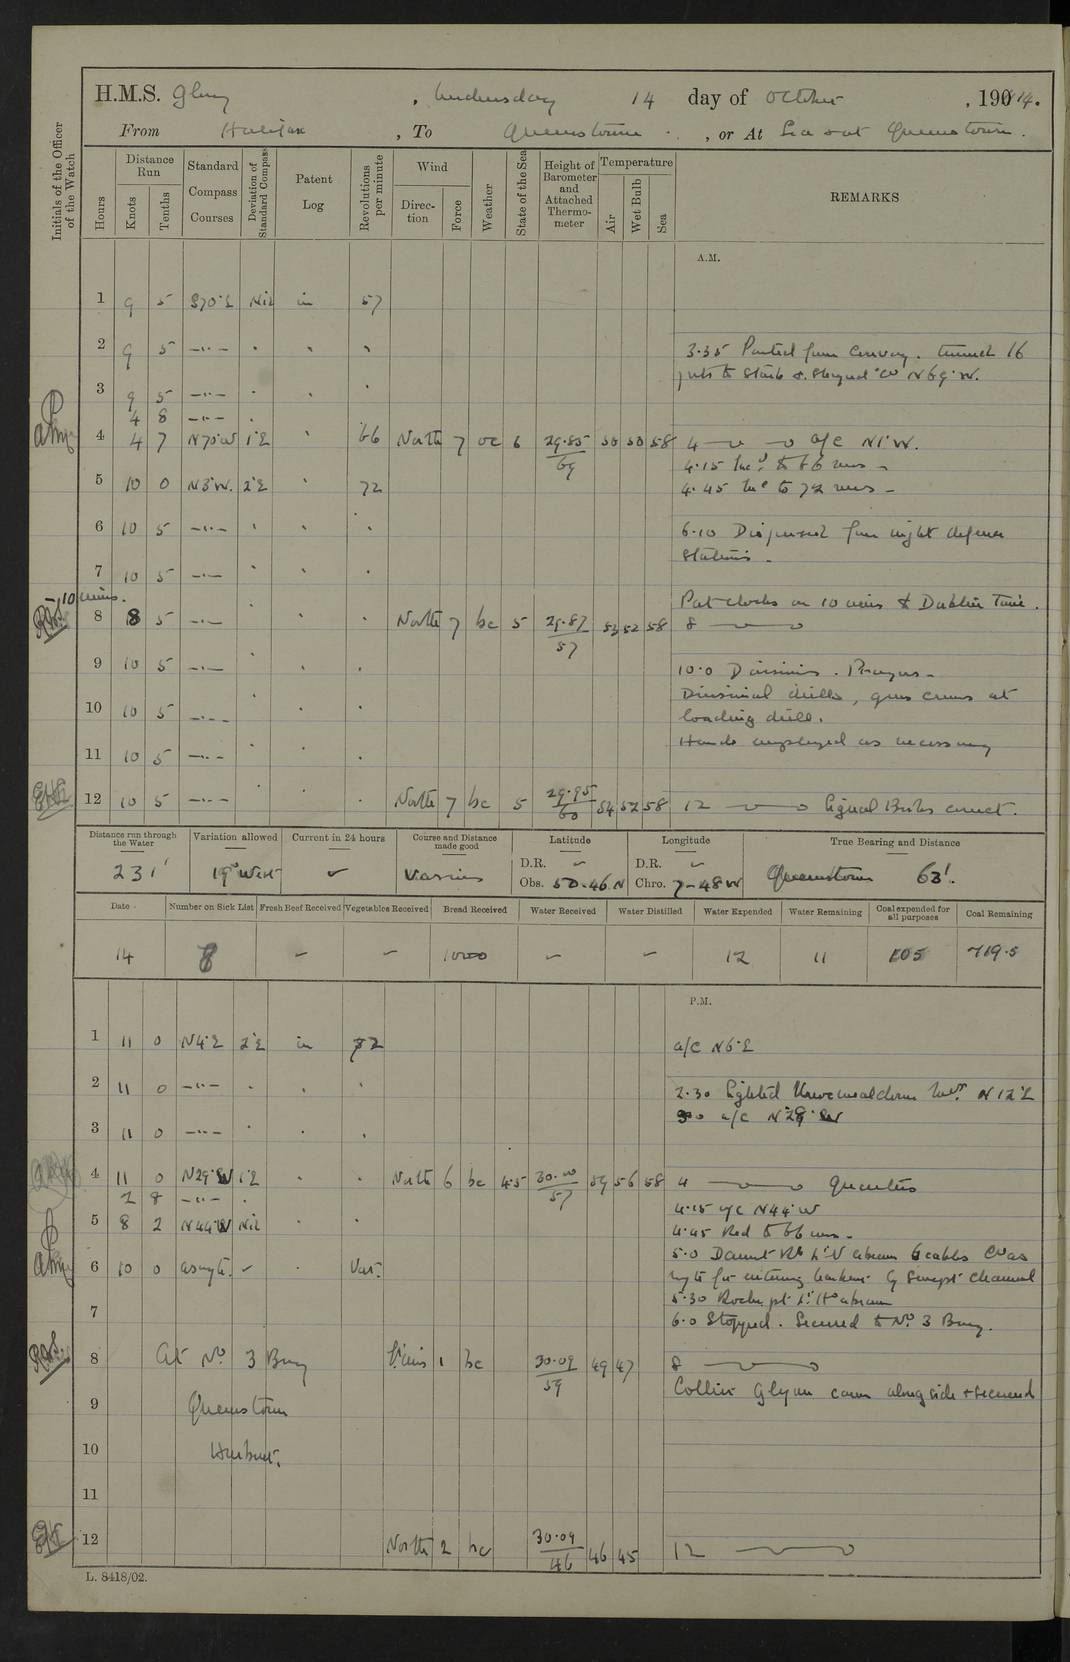 H.M.S. Glory, Wednesday 14 day of October, 1914.
From Halifax, To Queenstown, or At Sea & at Queenstown.
Initials of the Officer of the Watch
Hours
Distance Run
Knots
Tenths
Standard Compass Courses
Deviation of Standard Compass
Patent Log
Revolutions per minute
Wind
Direction
Force
Weather
State of the Sea
Height of Barometer and Attached Thermometer
Temperature
Air
Wet Bulb
Sea
REMARKS
A.M.
1 9 5 S70°E Nil in 57
2 9 5 —"— " " "
3.35 Parted from Convoy. turned 16
pts to Starb & steered Co N69°W.
3 9 5 —"— " " "
4 8 —"— "
4 4 7 N70°W 1°E " 66 North 7 oc 6 29.85/69 50 50 58 4 a/c N1°W.
4.15 Incd to 66 revs
5 10 0 N3°W. 2°E " 72 4.45 Inc to 72 revs
6 10 5 —"— " " " 6.10 Dispersed from night defence
Stations.
7 10 5 —"— " " "
-10 mins.
Put clocks on 10 mins to Dublin Time.
8 8 5 —"— " " " North 7 bc 5 29.87/57 53 52 58 8
9 10 5 —"— " " " 10.0 Divisions. Prayers
Divisional drills, guns crews at
10 10 5 —"— " " " loading drill.
Hands employed as necessary
11 10 5 —"— " "
12 10 5 —"— " " " North 7 bc 5 29.95/60 54 52 58 12 Signal Books correct.
Distance run through the Water
231'
Variation allowed
19° West
Current in 24 hours
Course and Distance made good
Various
Latitude
D.R.
Obs. 50-46 N
Longitude
D.R.
Chro. 7-48 W
True Bearing and Distance
Queenstown 63'.
Date Number on Sick List Fresh Beef Received Vegetables Received Bread Received Water Received Water Distilled Water Expended Water Remaining Coal expended for all purposes Coal Remaining
14 8 - - 1000 - - 12 11 105 719.5
P.M.
1 11 0 N4°E 2°E in 72 a/c N6°E
2 11 0 —"— " " " 2.30 Sighted N12°E
a/c
3 11 0 —"— " " "
4 11 0 N29°W 1°E " " North 6 bc 45 30.00/57 59 56 58 4 Quarters
2 8 —"— "
4.15 a/c N44°W
5 8 2 N44°W Nil " " 4.45 Red to 66 revs
5.0 Daunt Rk Lt V abeam 6 cables Co as
6 10 0 as reqte. " Var. reqte for entering harbour by Swept channel
5.30 Roche pt Lt Ho abeam
7
6.0 Stopped. Secured to No 3 Buoy.
8 At No 3 Buoy 1 bc 30.09/59 49 47 8
Collier Glynn came alongside & secured
9 Queenstown
10 Harbour.
11
12 North 2 bc 30.09/46 46 45 12
L. 8418/02.